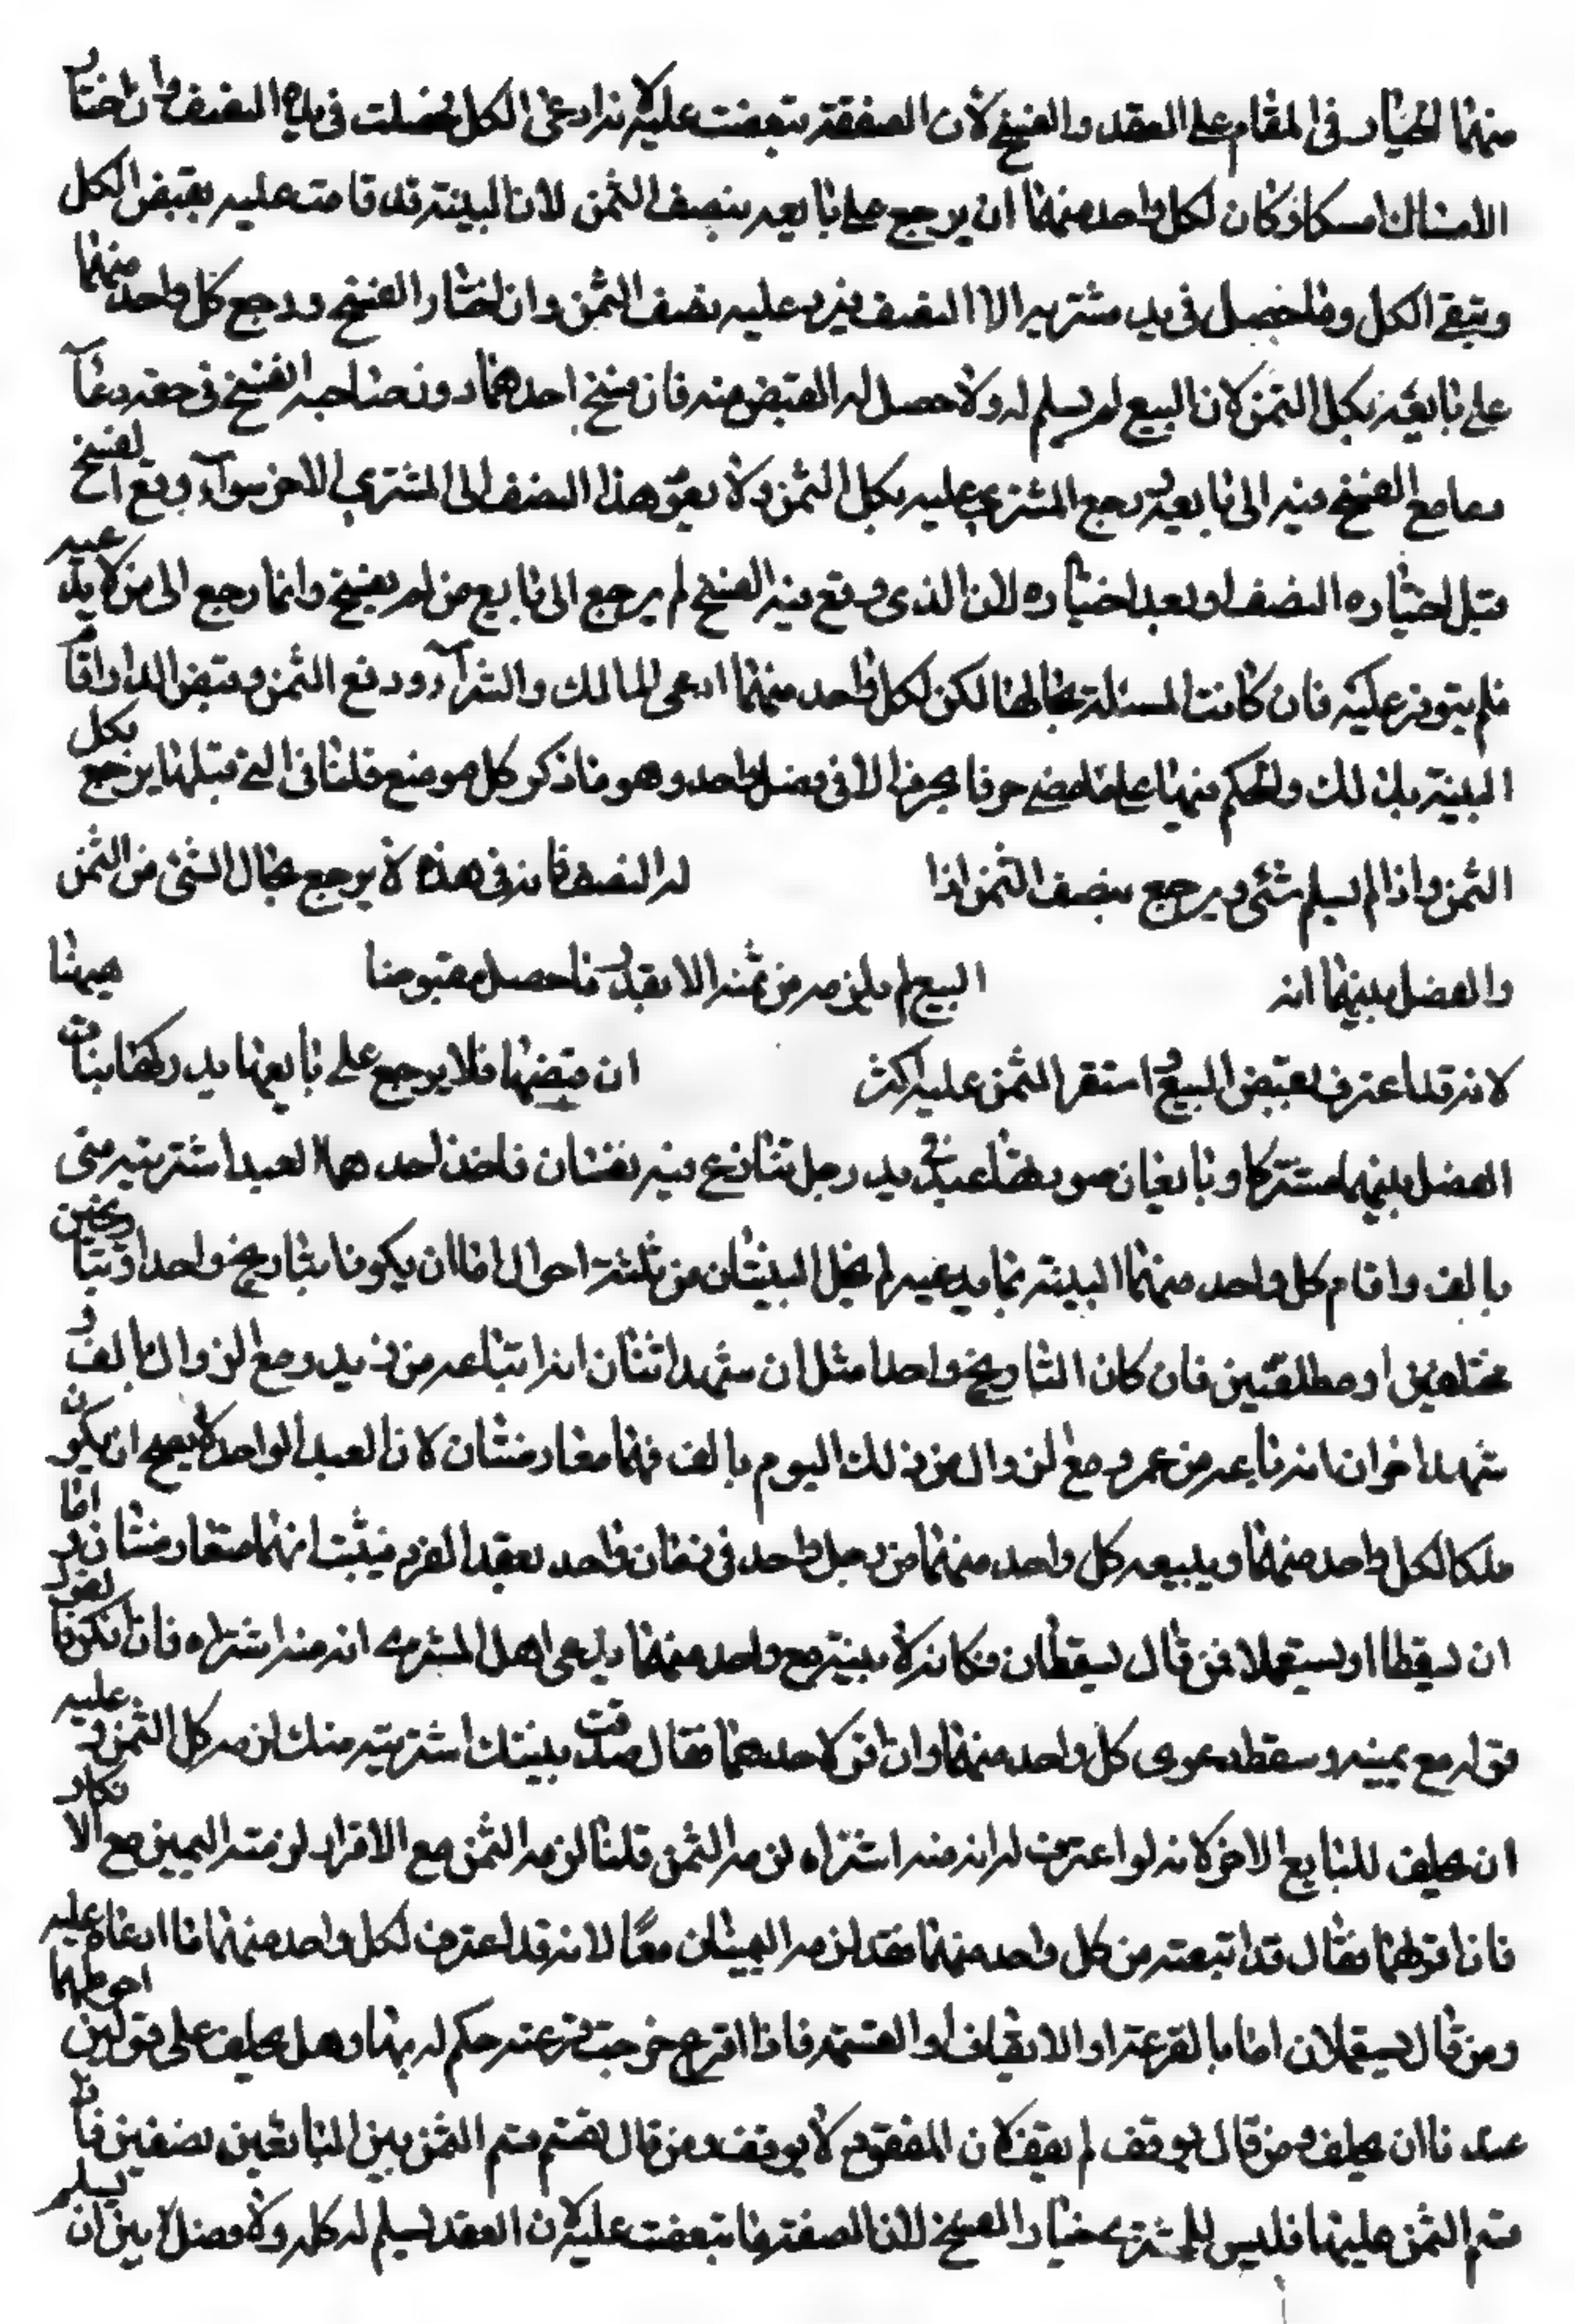 منهما الخيار في المقام على العقد والفسخ لأن الصفقة تبعضت عليه لأنه ادعى الكل فحصلت في يده النصف وان اختار
الامساك امسك وكان لكل واحد منهما ان يرجع على بايعه بنصف الثمن لان البينة قد قامت عليه بقبض الكل
وتبقى الكل وما حصل في يد مشتريه الا النصف فيرد عليه نصف الثمن وان اختار الفسخ ورجع كل واحد منهما
على بايعه بكل الثمن لان البيع لم يسلم له ولا حصل له القبض منه فان فسخ احدهما دون صاحبه الفسخ في حقه وعاد
ما مع الفسخ منه الى بايعه ورجع المشتري عليه بكل الثمن ولا يعود هذا النصف الى المشتري الاخر سوآء وقع الفسخ
قبل اختياره النصف او بعد اختياره لان الذي وقع فيه الفسخ لم يرجع الى بايع من لم يفسخ وانما رجع الى من لا يدعيه
فلم يتوفر عليه فان كانت المسئلة بحالها لكن لكل واحد منهما ادعى المالك والشرآء ودفع الثمن وقبض الدار واقام
البينة بذلك والحكم فيها على ما مضى حرفا بحرف الا في فصل واحد وهو ما ذكر كل موضع قلنا في التي قبلها يرجع بكل
الثمن واذا لم يسلم شئ ويرجع بنصف الثمن اذا له النصف فانه في هذه لا يرجع بحال الشئ من الثمن
والفصل بينهما انه البيع لم يلزمه من ثمنه الا بقدر ما حصل مقبوضا هيهنا
لانه قد اعترف بقبض المبيع واستقر الثمن عليه اكثر ان قبضها فلا يرجع على بايعها بدركها بنات
الفصل بينهما مشتركا وبايعان صورتها عبد في يد رجل تنازع فيه نفسان فاخذ احدهما العبد اشتريته مني
بالف واقام كل واحد منهما البينة بما يدعيه لم يخل البينتان من ثلثة احوال اما ان يكونا بتاريخ واحد او بتاريخين
مختلفين او مطلقتين فان كان التاريخ واحدا مثل ان شهد اثنان انه ابتاعه من زيد مع الزوال بالف و
شهد اخران انه باعه من عمرو مع الزوال من ذلك اليوم بالف فهما متعارضتان لان العبد الواحد لا يصح ان يكون
ملكا لكل واحد منهما ويبيعه كل واحد منهما من رجل واحد في زمان واحد بعقد الفرد فيثبت انهما متعارضتان و اما
ان يسقطا او يستعملا فمن قال يسقطان فكانه لا بينة مع واحد منهما يدعى هل المشتري انه منه اشتراه فان انكر فالقول
قوله مع يمينه وسقط دعوى كل واحد منهما وان اقر لاحدهما فقال صدقت بينتك اشتريته منك لزمه كل الثمن و عليه
ان يحلف للبايع الاخر لانه لو اعترف له انه منه اشتراه لزمه الثمن قلنا لزمه الثمن مع الاقرار لزمته اليمين مع الانكار
فان اقر لهما فقال قد ابتعته من كل واحد منهما فقد لزمه اليمينان معًا لانه قد اعترف لكل واحد منهما ما ادعاه عليه
ومن قال يستعملان اما بالقرعة او الايقاف او القسمة فاذا اقرع خرجت قرعته حكم له بها وهل يحلف على قولين احوطهما
عندنا ان يحلف ومن قال يوقف لم يقف لان المفقود لا يوقف ومن قال يقسم قسم الثمن بين البايعين نصفين فاذا
قسم الثمن عليهما فليس للمشتري خيار الفسخ لان الصفقة ما تبعضت عليه لان العقد يسلم له كله ولا فصل بين ان يسلم